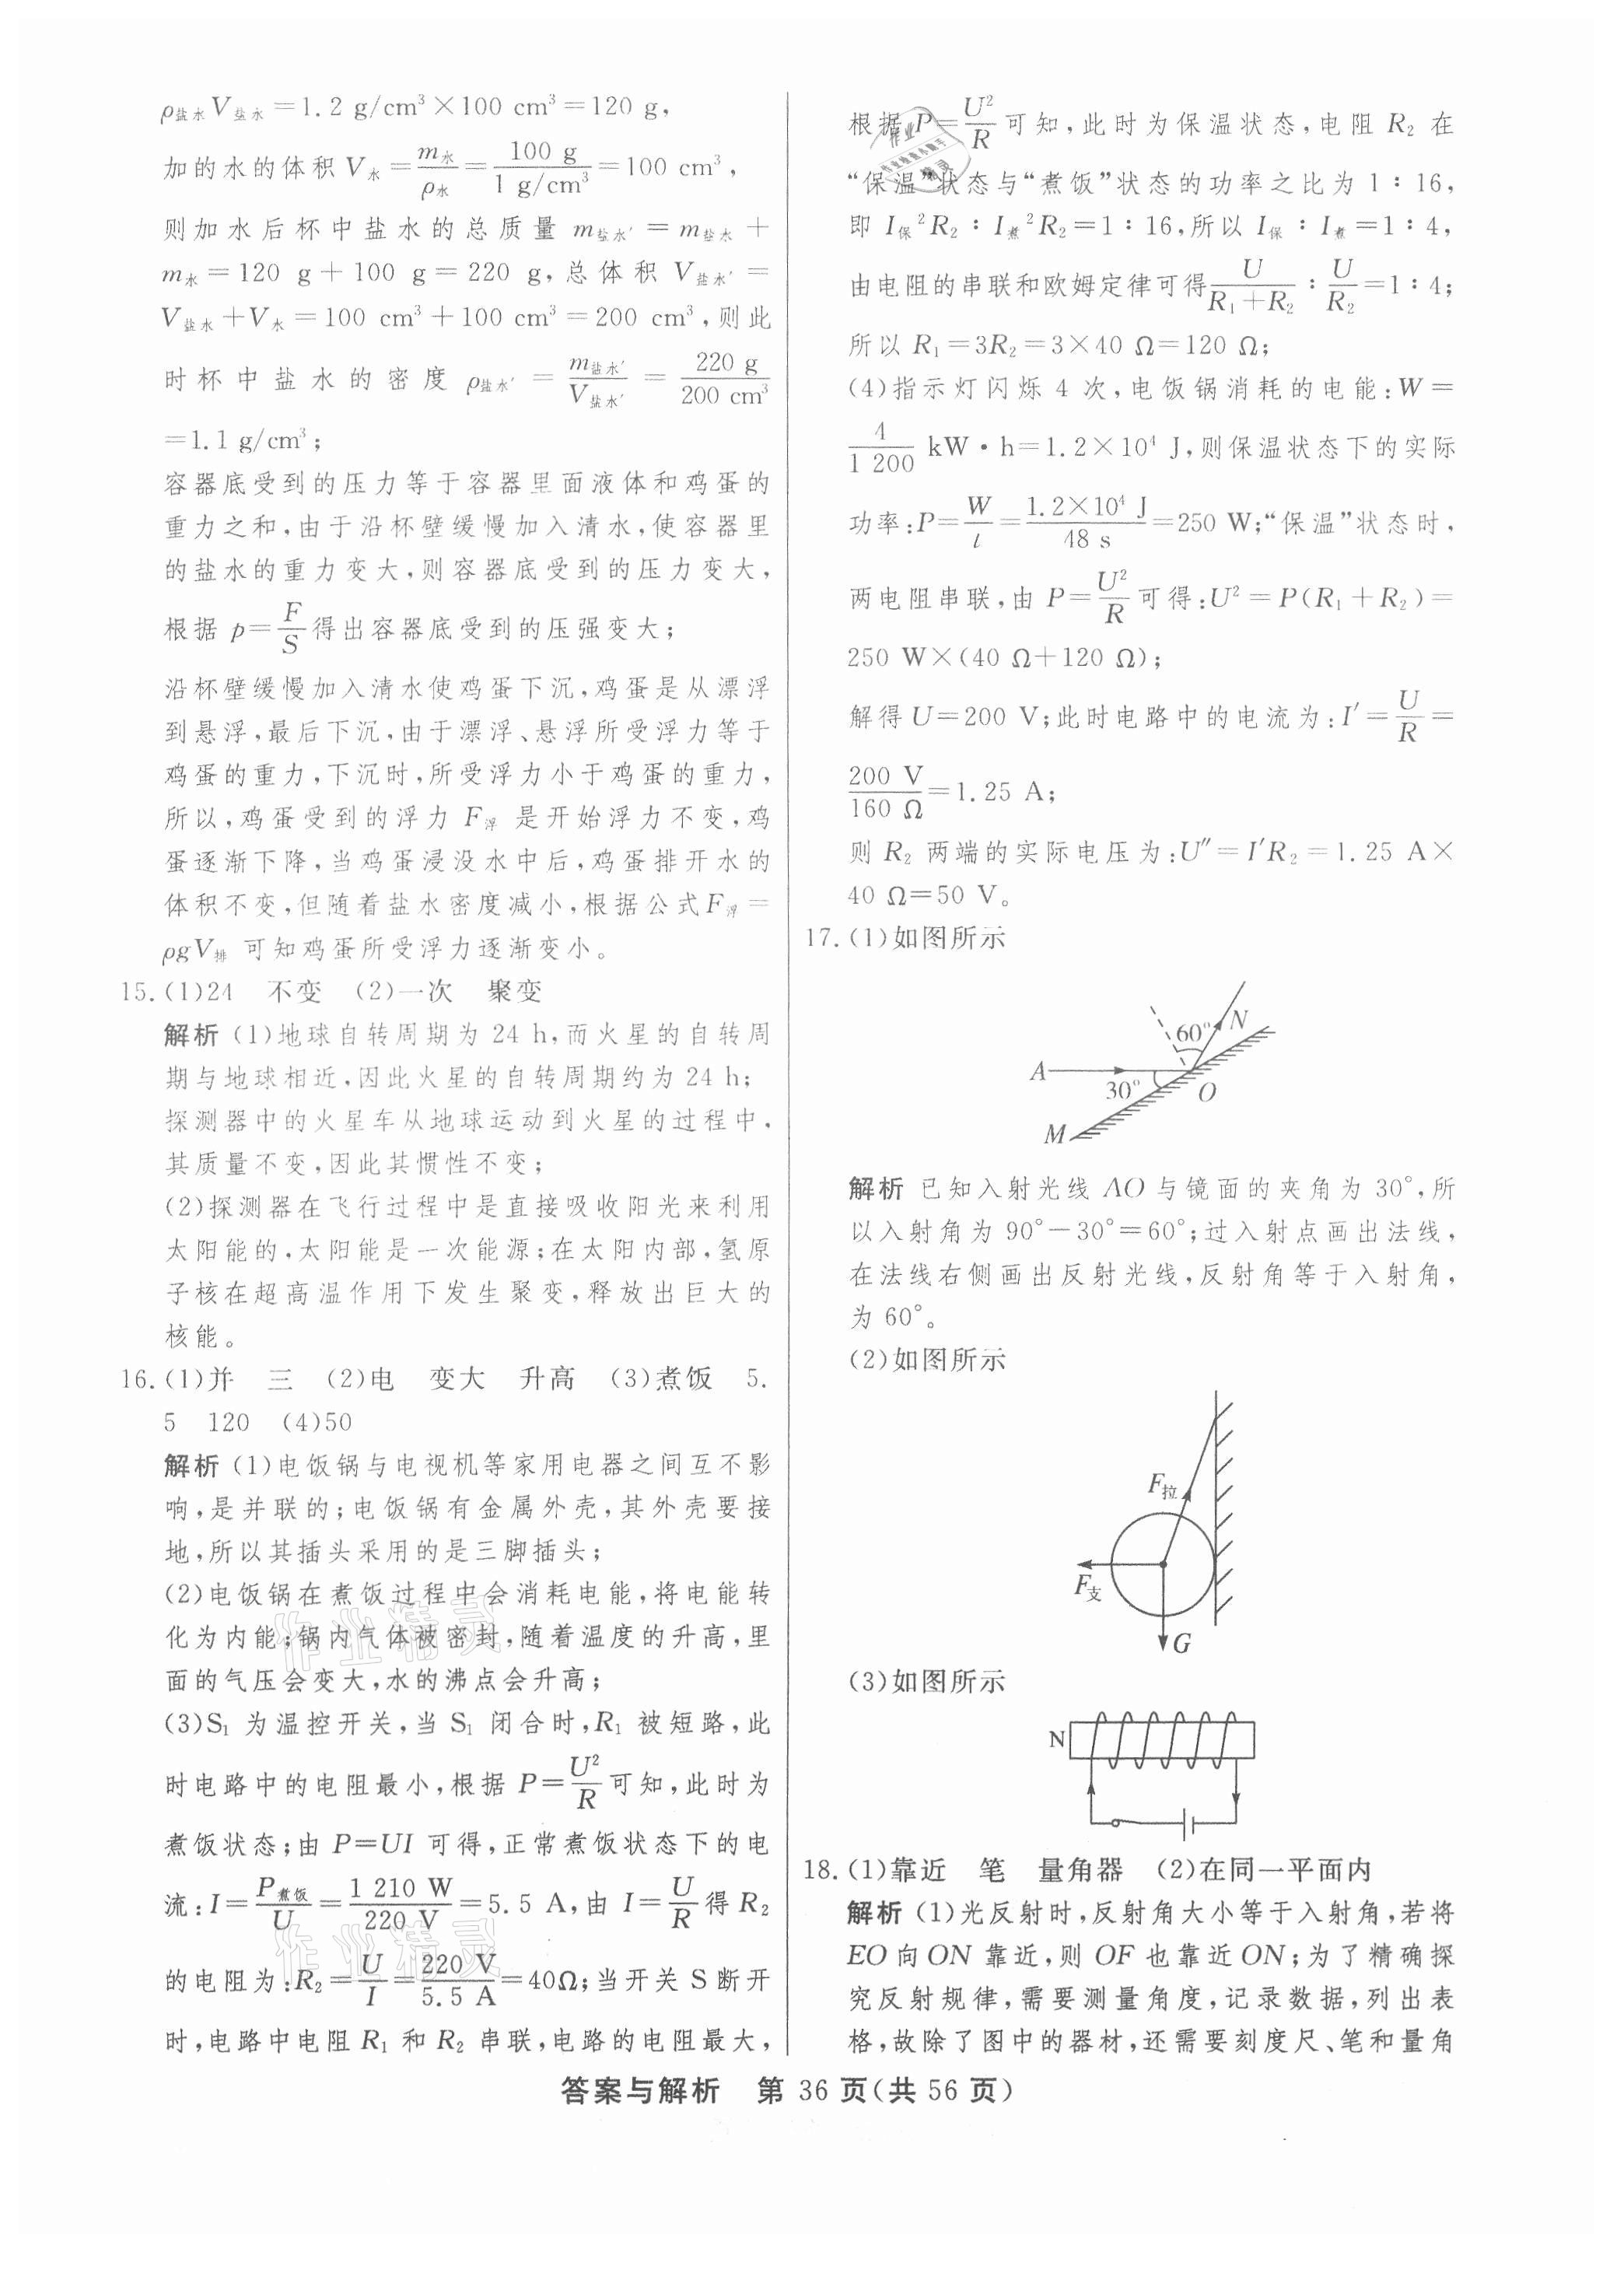 ρ盐水V盐水=1.2 g/cm³×100 cm³=120 g,
加的水的体积 V水=m水/ρ水=100 g/1 g/cm³=100 cm³,
则加水后杯中盐水的总质量 m盐水′=m盐水+
m水=120 g+100 g=220 g,总体积 V盐水′=
V盐水+V水=100 cm³+100 cm³=200 cm³,则此
时杯中盐水的密度 ρ盐水′=m盐水′/V盐水′=220 g/200 cm³
=1.1 g/cm³;
容器底受到的压力等于容器里面液体和鸡蛋的
重力之和,由于沿杯壁缓慢加入清水,使容器里
的盐水的重力变大,则容器底受到的压力变大,
根据 p=F/S得出容器底受到的压强变大;
沿杯壁缓慢加入清水使鸡蛋下沉,鸡蛋是从漂浮
到悬浮,最后下沉,由于漂浮、悬浮所受浮力等于
鸡蛋的重力,下沉时,所受浮力小于鸡蛋的重力,
所以,鸡蛋受到的浮力 F浮 是开始浮力不变,鸡
蛋逐渐下降,当鸡蛋浸没水中后,鸡蛋排开水的
体积不变,但随着盐水密度减小,根据公式F浮=
ρgV排 可知鸡蛋所受浮力逐渐变小。
15.(1)24 不变 (2)一次 聚变
解析 (1)地球自转周期为 24 h,而火星的自转周
期与地球相近,因此火星的自转周期约为 24 h;
探测器中的火星车从地球运动到火星的过程中,
其质量不变,因此其惯性不变;
(2)探测器在飞行过程中是直接吸收阳光来利用
太阳能的,太阳能是一次能源;在太阳内部,氢原
子核在超高温作用下发生聚变,释放出巨大的
核能。
16.(1)并 三 (2)电 变大 升高 (3)煮饭 5.
5 120 (4)50
解析 (1)电饭锅与电视机等家用电器之间互不影
响,是并联的;电饭锅有金属外壳,其外壳要接
地,所以其插头采用的是三脚插头;
(2)电饭锅在煮饭过程中会消耗电能,将电能转
化为内能;锅内气体被密封,随着温度的升高,里
面的气压会变大,水的沸点会升高;
(3)S₁ 为温控开关,当 S₁ 闭合时,R₁ 被短路,此
时电路中的电阻最小,根据 P=U²/R可知,此时为
煮饭状态;由 P=UI 可得,正常煮饭状态下的电
流:I=P煮饭/U=1 210 W/220 V=5.5 A,由 I=U/R得 R₂
的电阻为:R₂=U/I=220 V/5.5 A=40Ω;当开关 S 断开
时,电路中电阻 R₁ 和 R₂ 串联,电路的电阻最大,
根据 P=U²/R可知,此时为保温状态,电阻 R₂ 在
“保温”状态与“煮饭”状态的功率之比为 1∶16,
即 I保²R₂∶I煮²R₂=1∶16,所以 I保∶I煮=1∶4,
由电阻的串联和欧姆定律可得U/R₁+R₂∶U/R₂=1∶4;
所以 R₁=3R₂=3×40 Ω=120 Ω;
(4)指示灯闪烁 4 次,电饭锅消耗的电能:W=
4/1 200 kW·h=1.2×10⁴ J,则保温状态下的实际
功率:P=W/t=1.2×10⁴ J/48 s=250 W;“保温”状态时,
两电阻串联,由 P=U²/R可得:U²=P(R₁+R₂)=
250 W×(40 Ω+120 Ω);
解得 U=200 V;此时电路中的电流为:I′=U/R=
200 V/160 Ω=1.25 A;
则 R₂ 两端的实际电压为:U″=I′R₂=1.25 A×
40 Ω=50 V。
17.(1)如图所示
60° N
A 30° O
M
解析 已知入射光线 AO 与镜面的夹角为 30°,所
以入射角为 90°-30°=60°;过入射点画出法线,
在法线右侧画出反射光线,反射角等于入射角,
为 60°。
(2)如图所示
F拉
F支
G
(3)如图所示
N
18.(1)靠近 笔 量角器 (2)在同一平面内
解析 (1)光反射时,反射角大小等于入射角,若将
EO 向 ON 靠近,则 OF 也靠近 ON;为了精确探
究反射规律,需要测量角度,记录数据,列出表
格,故除了图中的器材,还需要刻度尺、笔和量角
答案与解析 第 36 页(共 56 页)
作业精灵
作业精灵